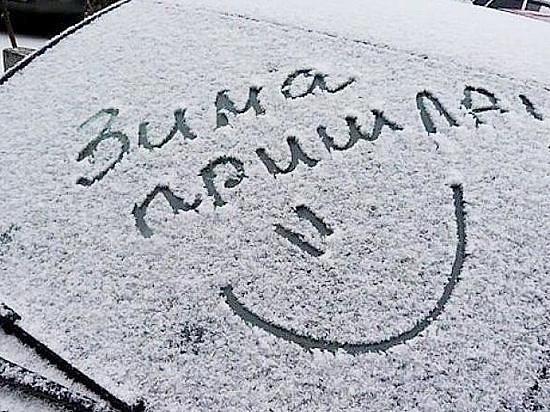 Зима
пришла